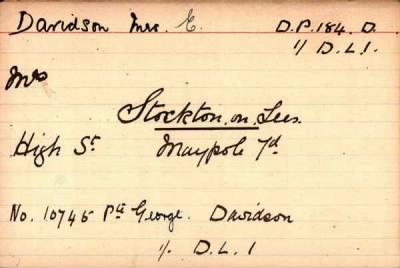 Davidson Mrs. E. D.P. 184. D.
1/ D.L.I.
Mrs
Stockton. on. Tees.
High St. Maypole Yd.
No. 10745 Pte George. Davidson
1/. D.L.I